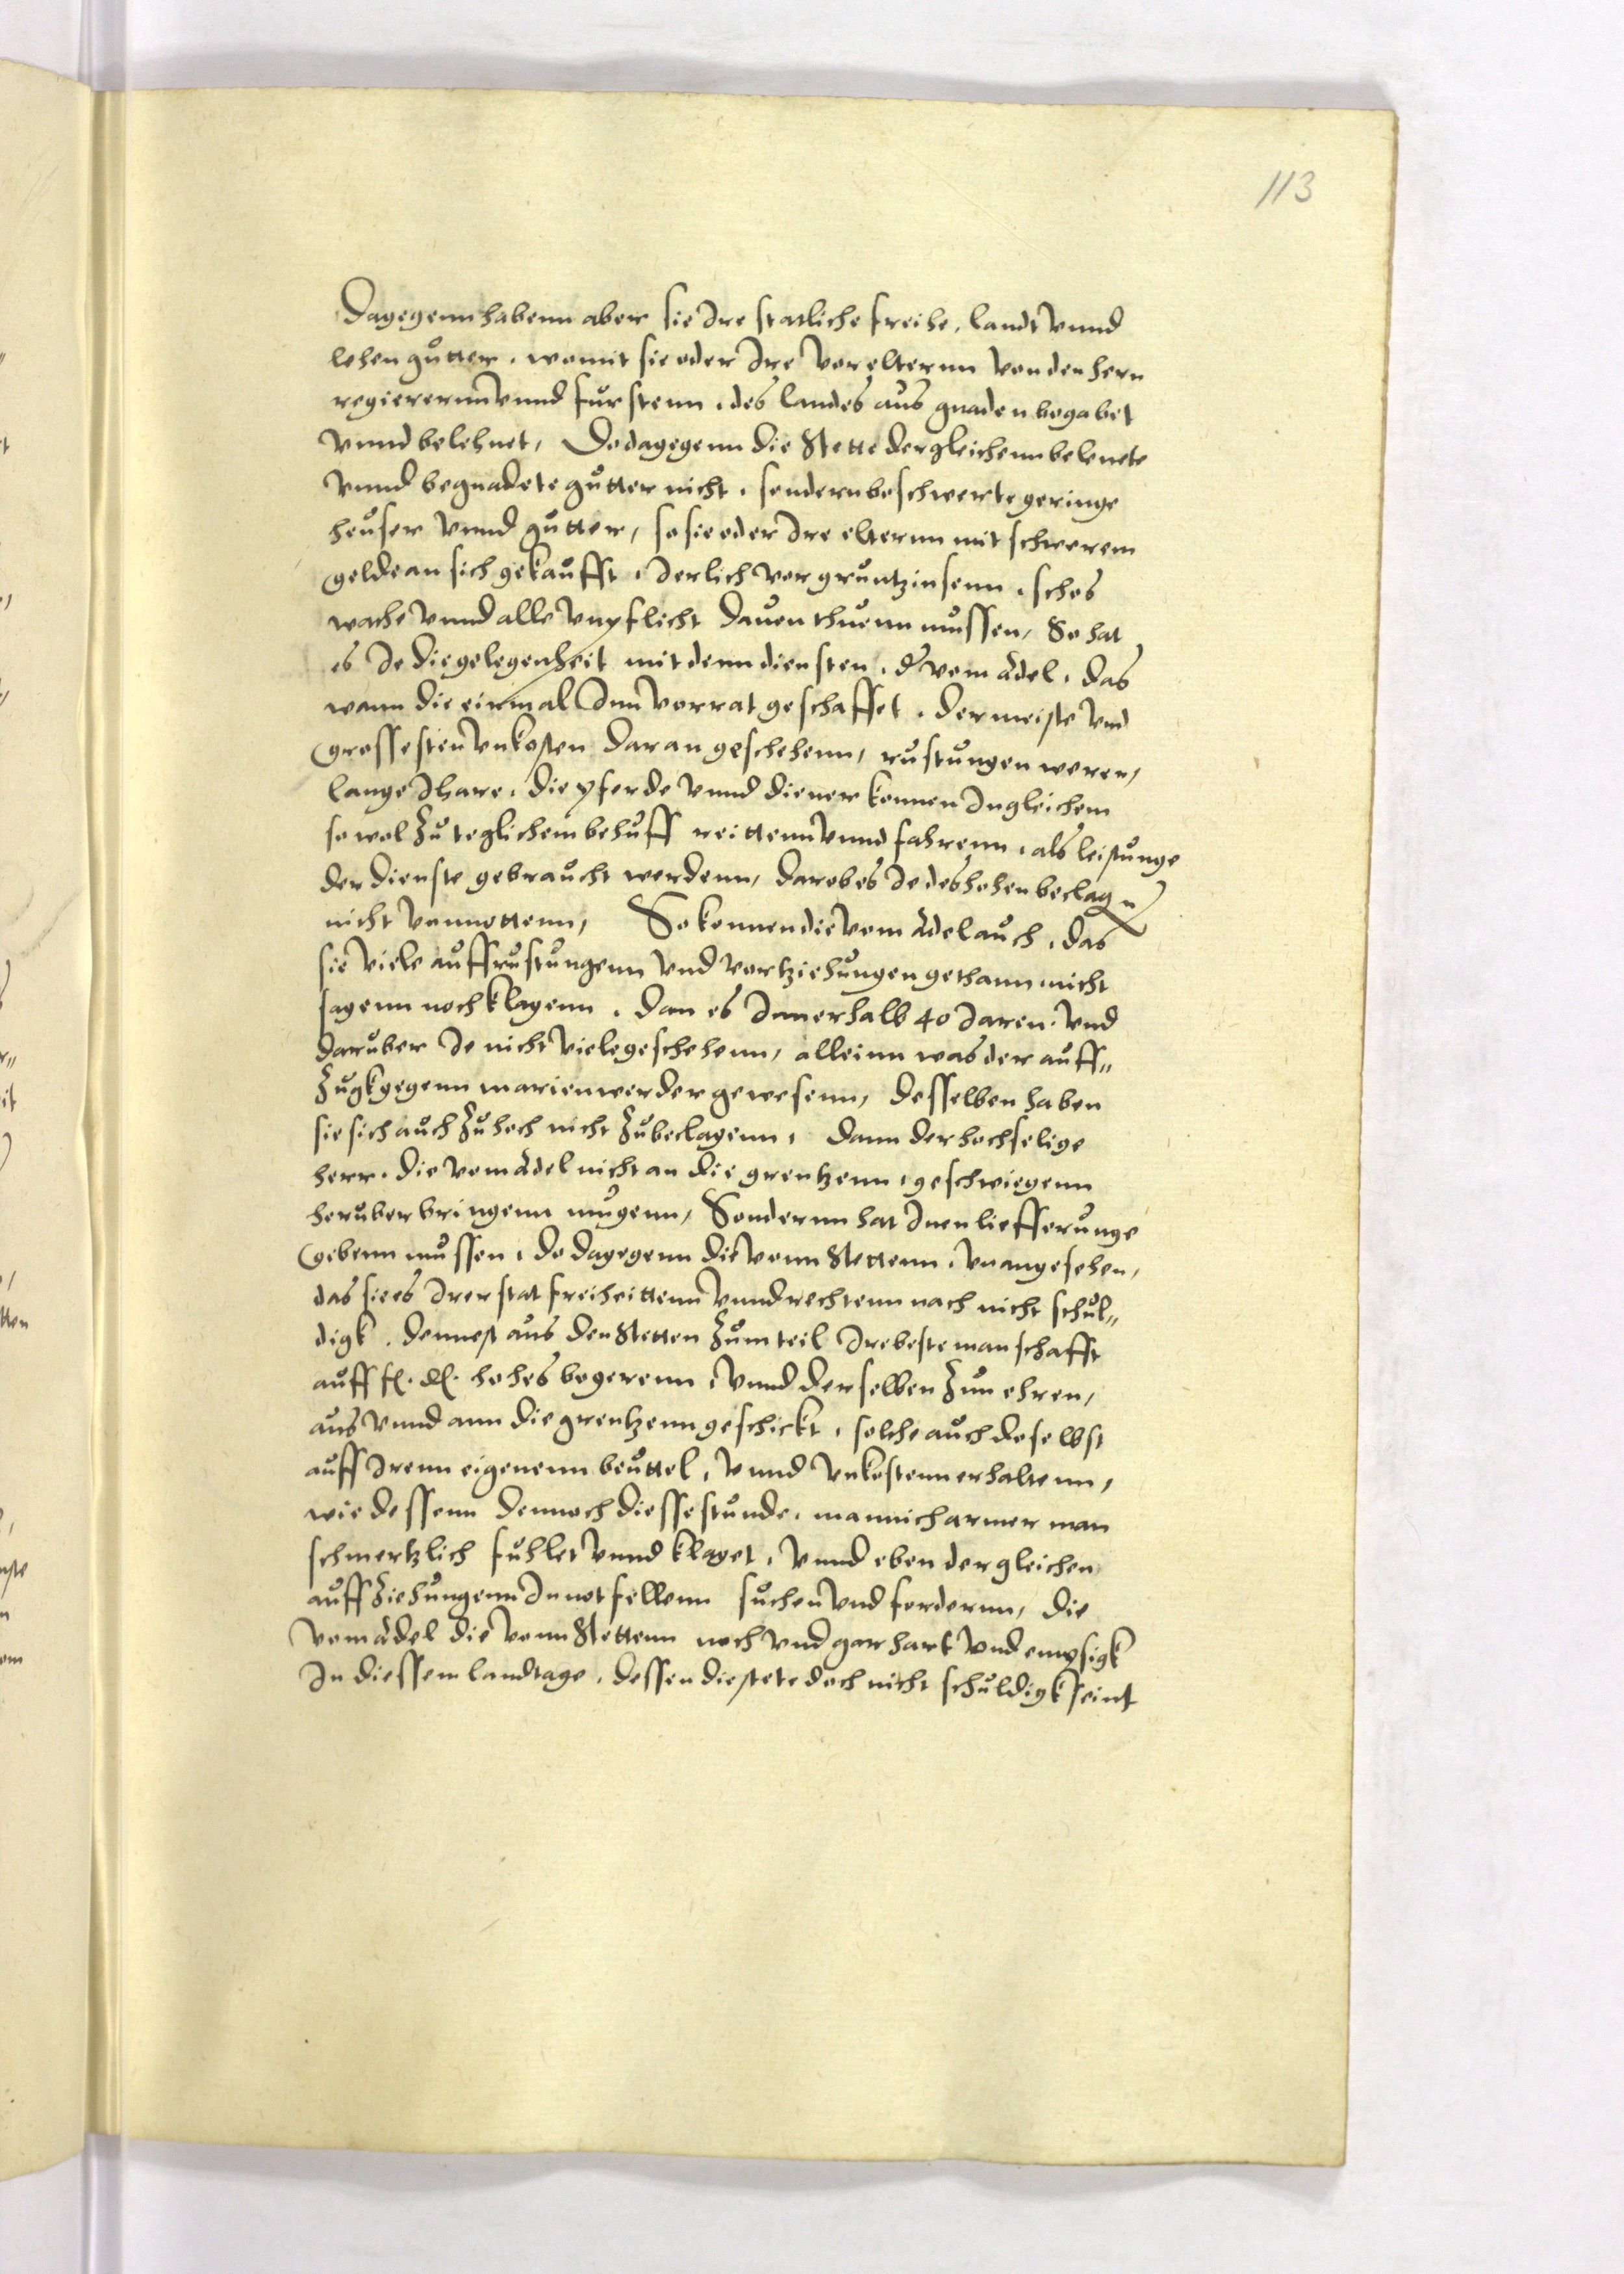 113
Dagegenn habenn aber sie Ire statliche freihe, landt vnnd
lehen gutter, womit sie oder Ire vorelternn von den hern
regierernn vnnd furstenn, des landes aus gnaden begabet
vnnd belehnet, Do dagegenn die Stette dergleichenn belenete
vnnd begnadete gutter nicht, sondern beschwerte geringe
heuser vnnd gutter, so sie oder Ire elternn mit schwerem
gelde an sich gekaufft, Jerlich vor gruntzinsenn, schos
wache vnnd alle vnpflicht dauon thuenn mussen, So hat
es Je die gelegenheit mit denn diensten, d vom Adel, das
wann die einmal Inn vorrat geschaffet, der meiste vnd
grossesten vnkosten daran geschehenn, rustungen weren,
lange Jhare, die pferde vnnd diener konnen Ingleichem
so wol zu teglichem behuff reittenn vnnd fahrenn, als leistunge
der dienste gebraucht werdenn, darob es Je des hohen beclagn
nicht vonnottenn, So konnen die vom Adel auch, das
sie viele auffrustungenn vnd vortziehungen gethann nicht
sagenn noch klagenn, dan es Innerhalb 40 Jaren vnd
daruber Je nicht viele geschehenn, alleinn was der auff„
zugk gegenn marienwerder gewesenn, desselben haben
sie sich auch zu hoch nicht zubeclagenn, dann der hochselige
herr, die vom Adel nicht an die grentzenn, geschwiegenn
heruber bringenn mugenn, Sondernn hat Inen liefferunge
gebenn mussen, do dagegenn die vonn Stettenn, vnangesehen,
das sie es Irer stat freiheittenn vnnd rechtenn nach nicht schul„
digk, dennost aus den Stetten zum teil Ire beste manschafft
auff fl. dl. hohes begerenn, vnnd derselben zun ehren,
aus vnnd ann die grentzenn geschickt, solche auch doselbst
auff Irenn eigenenn beuttel, vnnd vnkostenn erhaltenn,
wie dessenn dennoch diesse stunde, mannich armer man
schmertzlich fuhlet vnnd klaget, vnnd eben dergleichen
auffziehungenn In notfellenn suchen vnd fordernn, die
vom Adel die vonn Stettenn noch vnd gar hart vnd empsigk
In diessem landtage, dessen die stete doch nicht schuldigk seint